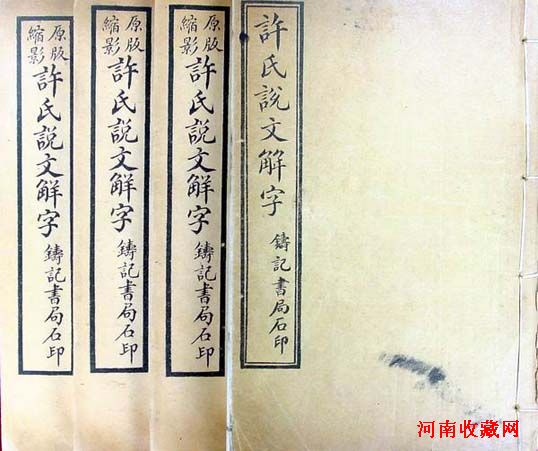 許氏說文解字 鑄記書局石印
原版縮影 許氏說文觧字 鑄記書局石印
原版縮影 許氏說文觧字 鑄記書局石印
原版縮影 許氏說文觧字 鑄記書局石印
河南收藏网